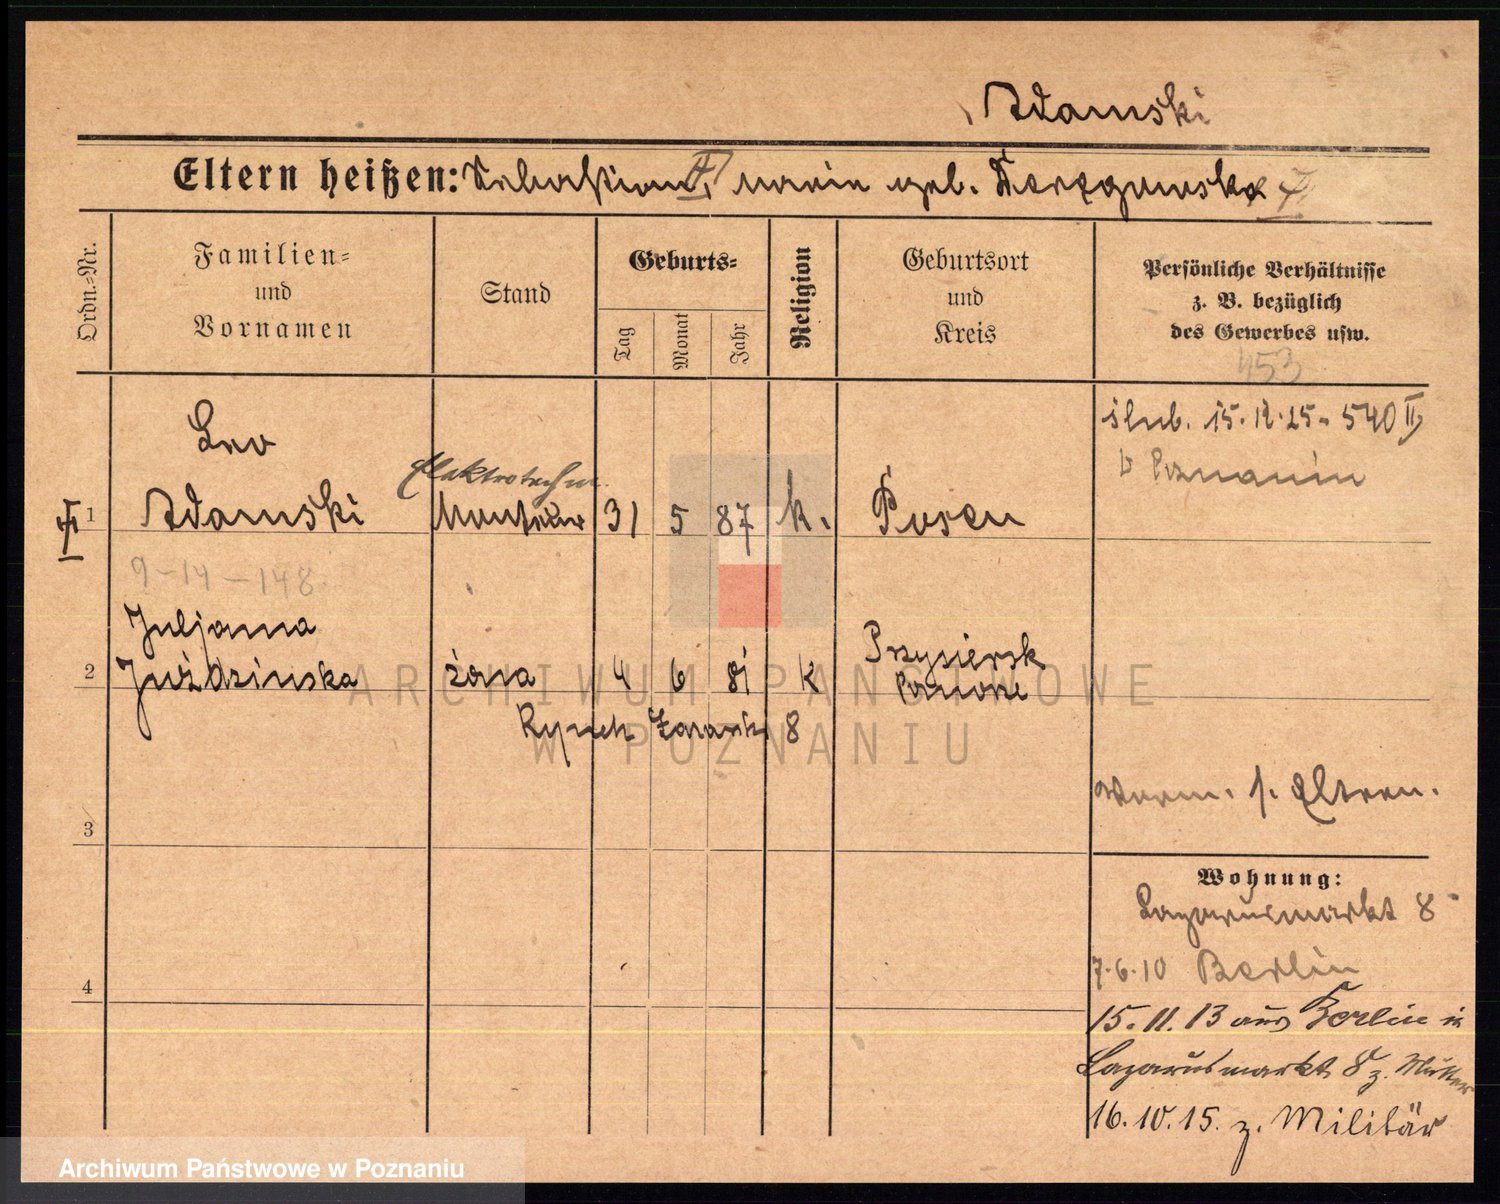 Adamski
Eltern heißen: Sebastian, Marie geb.
Ordn.-Nr.
Familien-
und
Vornamen
Stand
Geburts-
Tag
Monat
Jahr
Religion
Geburtsort
und
Kreis
Persönliche Verhältnisse
z. B. bezüglich
des Gewerbes usw.
453
ślub. 15.12.25. 540 II
w Poznaniu
Leo
Elektrotechn.
1 Adamski Monteur 31 5 87 k. Posen
9-14-148
Juljanna
2 żona 4 6 81 k
Rynek Łazarski 8
3
s. Eltern.
Wohnung:
Lazarusmarkt 8
7.6.10 Berlin
4
15.11.13 aus Berlin in
Lazarusmarkt 8 z. Mutter
16.10.15. z. Militär
ARCHIWUM PAŃSTWOWE
W POZNANIU
Archiwum Państwowe w Poznaniu